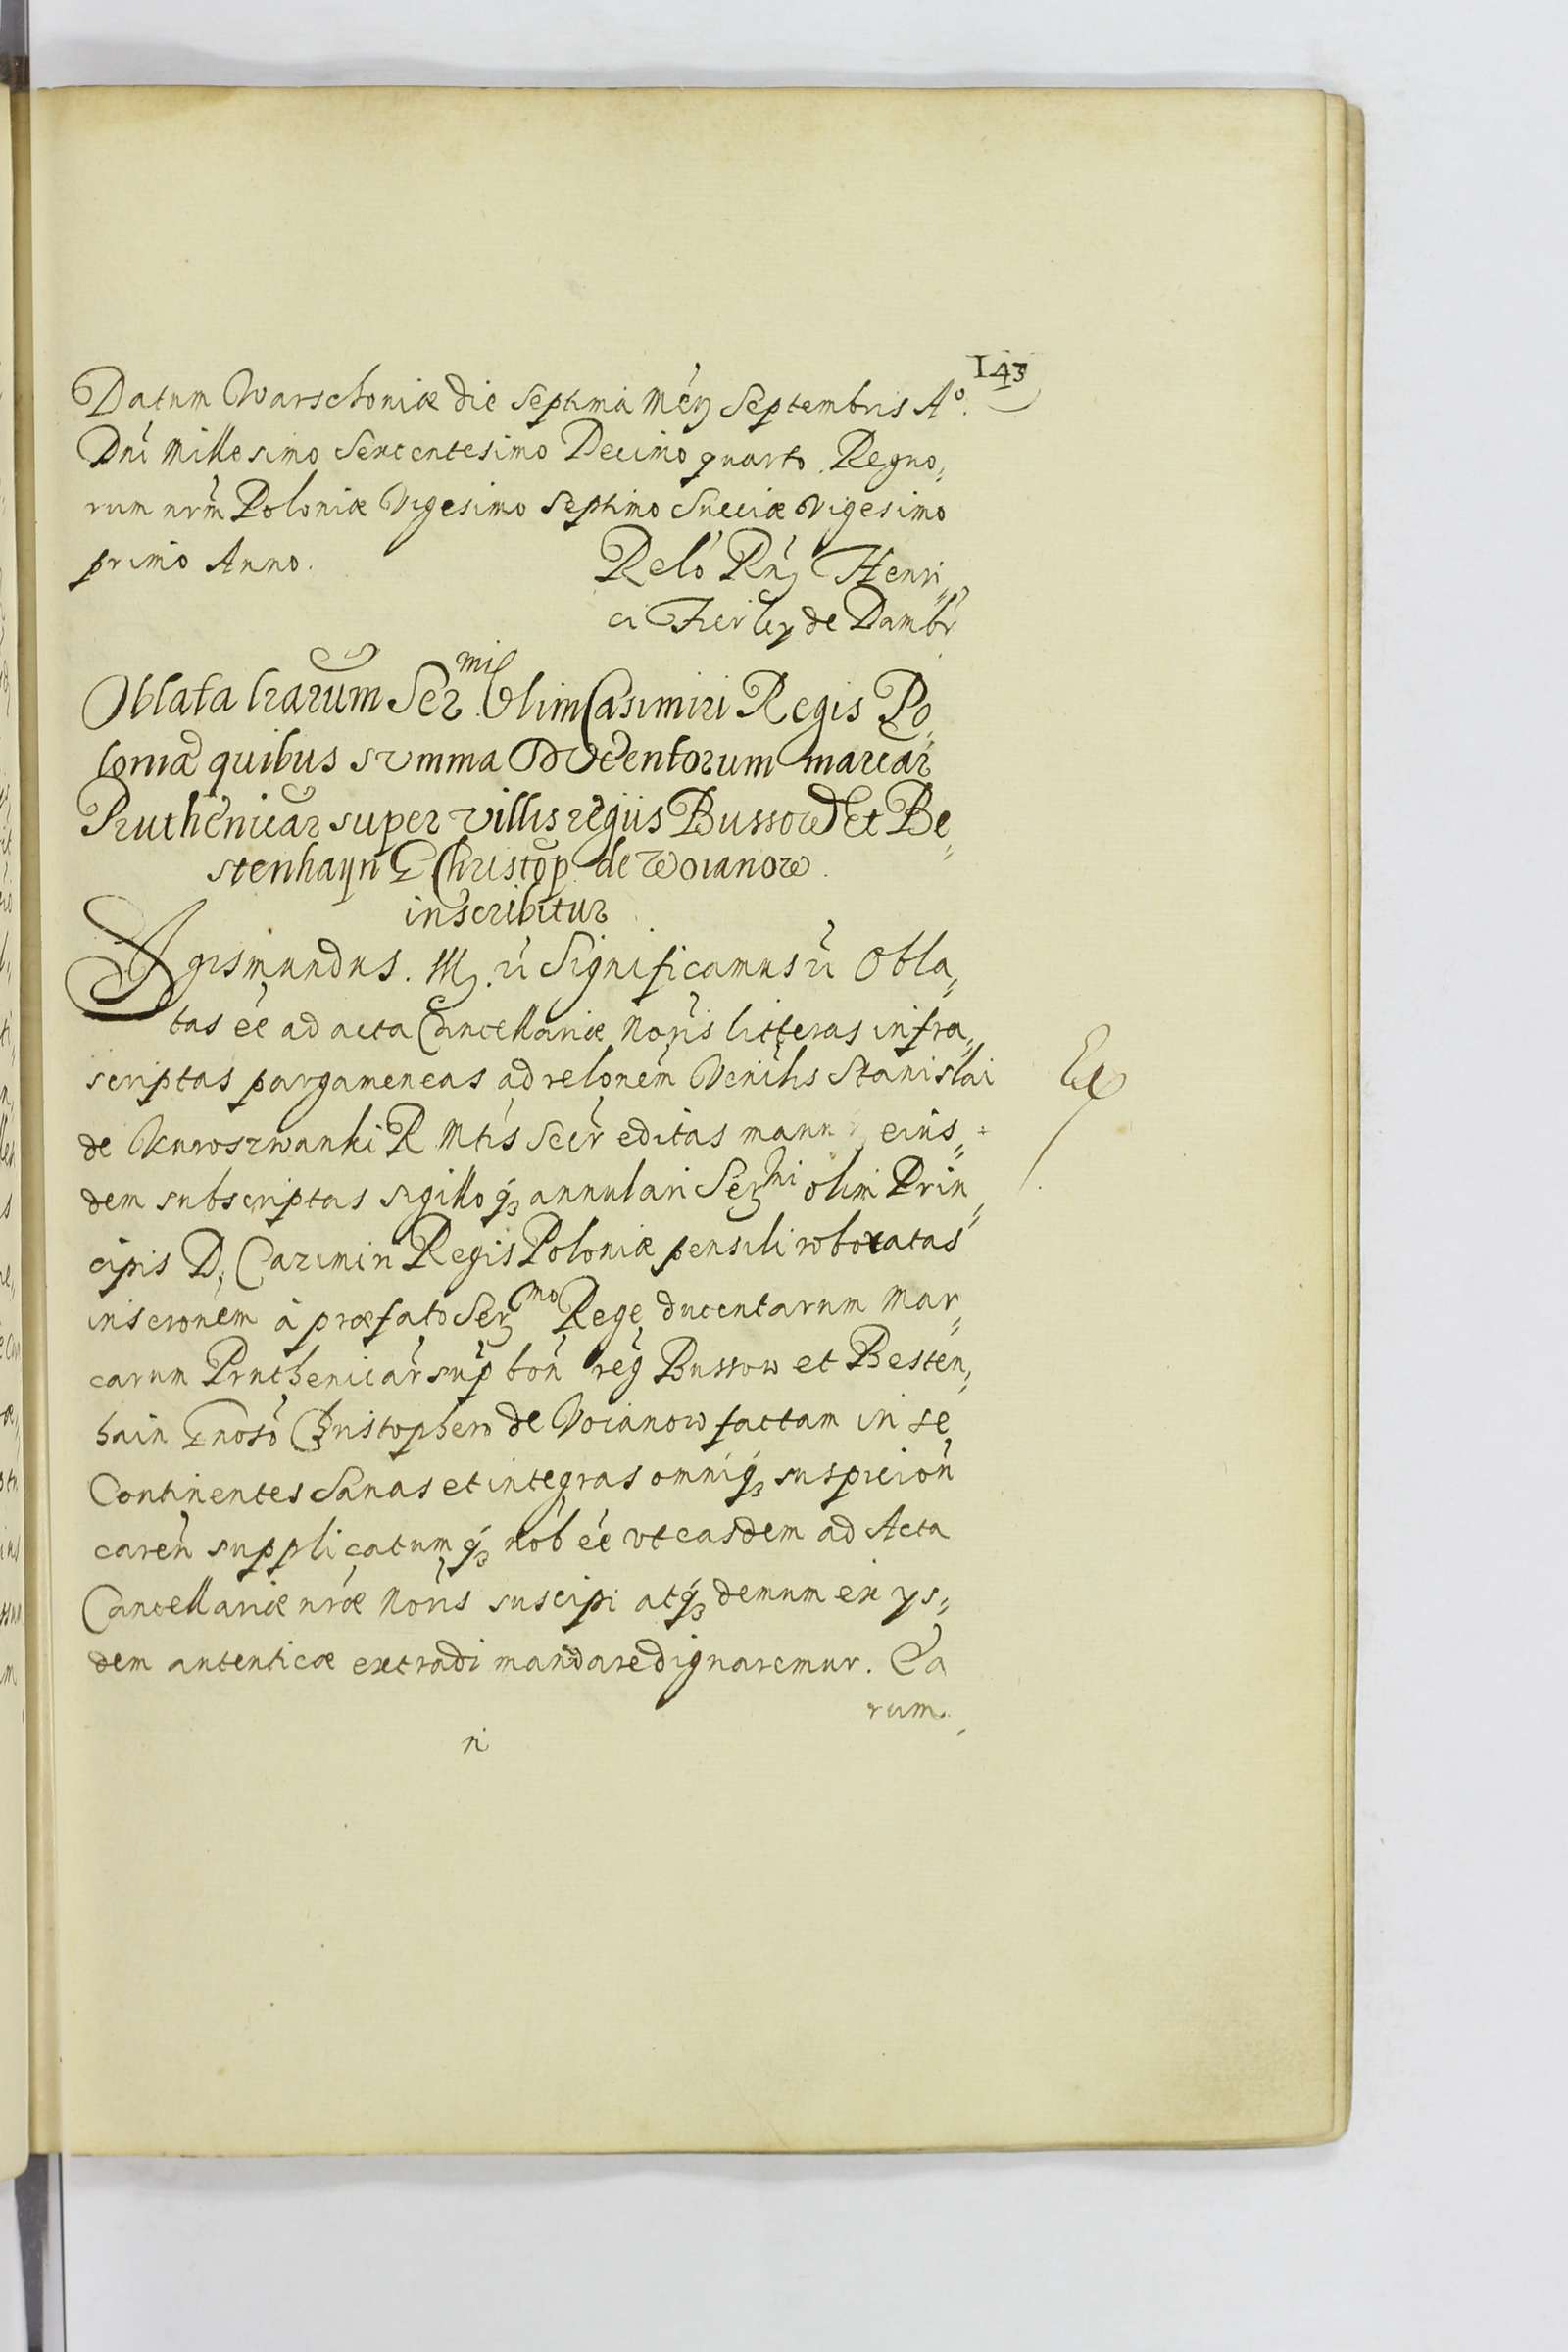 143
Datum Warschoniæ die Septima Men͛ Septembris Aº.
Dni Millesimo Sexcentesimo Decimo quarto. Regno„
rum nrm̃ Poloniæ Vigesimo Septimo Sueciæ Vigesimo
primo Anno. Relo Rñ Henri„
ci Firley de Dambr
Oblata lrarum Ser.mi Olim Casimiri Regis Po„
loniæ quibus summa Ducentorum marcar
Pruthenicar super villis regiis Bussow Et Be„
stenhayn G Christop. de Woianow.
inscribitur
Sigismundus. III. ri Significamus ri Obla„
tas eé ad acta Cancellariæ Noris litteras infra„
scriptas pargameneas ad relonem Venilis Stanislai
de Kuroszwanki R Mtis Secr editas manu eius„
dem subscriptas sigilloq̃ annulari Sermi olim Prin„
cipis D. Cazimiri Regis Poloniæ pensili roboratas
inscronem à præfato Sermo Rege ducentarum Mar„
carum Pruthenicar sup bon reg Bussow et Besten„
hain Gnoso Christophero de Voianow factam in se
Continentes Sanas et integras omniq̃ suspicion
caren supplicatumq̃ nob eé vt easdem ad Acta
Cancellariæ nræ Noris suscipi atq̃ demum ex ys„
dem autenticæ extradi mandare dignaremur. Qa
rum.
n